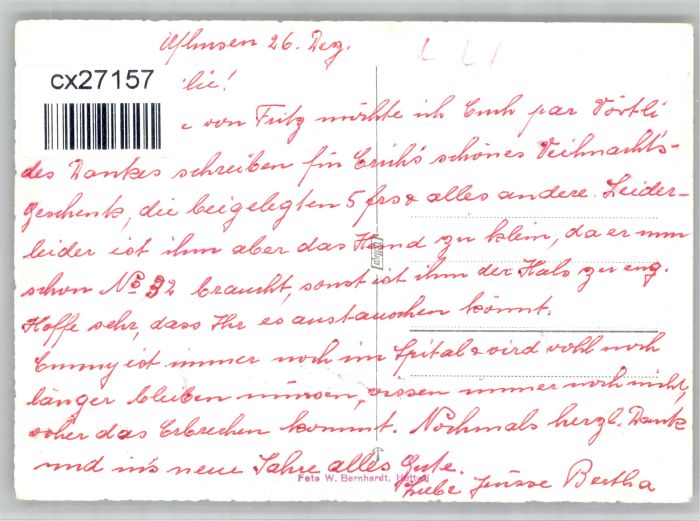 Ufhusen 26. Dez.
cx27157
lie!
von Fritz möchte ich Euch par Wörtli
des Dankes schreiben für Erich's schönes Weihnachts-
Geschenk, die beigelegten 5 frs & alles andere. Leider-
leider ist ihm aber das Hemd zu klein, da er nun
schon No 32 braucht, sonst ist ihm der Hals zu eng.
Hoffe sehr, dass Ihr es austauschen könnt.
Emmy ist immer noch im Spital & wird wohl noch
länger bleiben müssen, wissen immer noch nicht,
woher das Erbrechen kommt. Nochmals herzl. Dank
und in's neue Jahre alles Gute.
Foto W. Bernhardt,
Liebe Grüsse Bertha